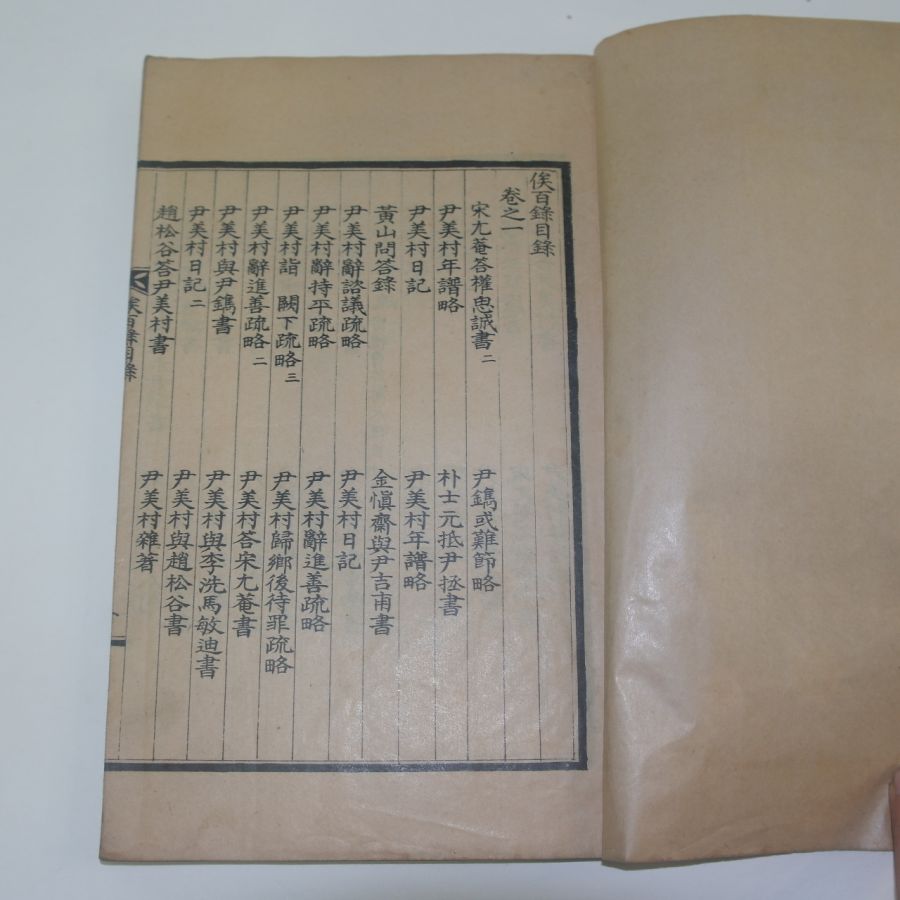 俟百錄目錄
卷之一
宋尤菴答權思誠書二
尹鑴或難節略
尹美村年譜略
朴士元抵尹拯書
尹美村日記
尹美村年譜略
黃山問答錄
金愼齋與尹吉甫書
尹美村辭諮議疏略
尹美村日記
尹美村辭持平疏略
尹美村辭進善疏略
尹美村詣 闕下疏略三
尹美村歸鄉後待罪疏略
尹美村辭進善疏略二
尹美村答宋尤菴書
尹美村與尹鑴書
尹美村與李洗馬敏迪書
尹美村日記二
尹美村與趙松谷書
趙松谷答尹美村書
尹美村雜著
俟百錄目錄